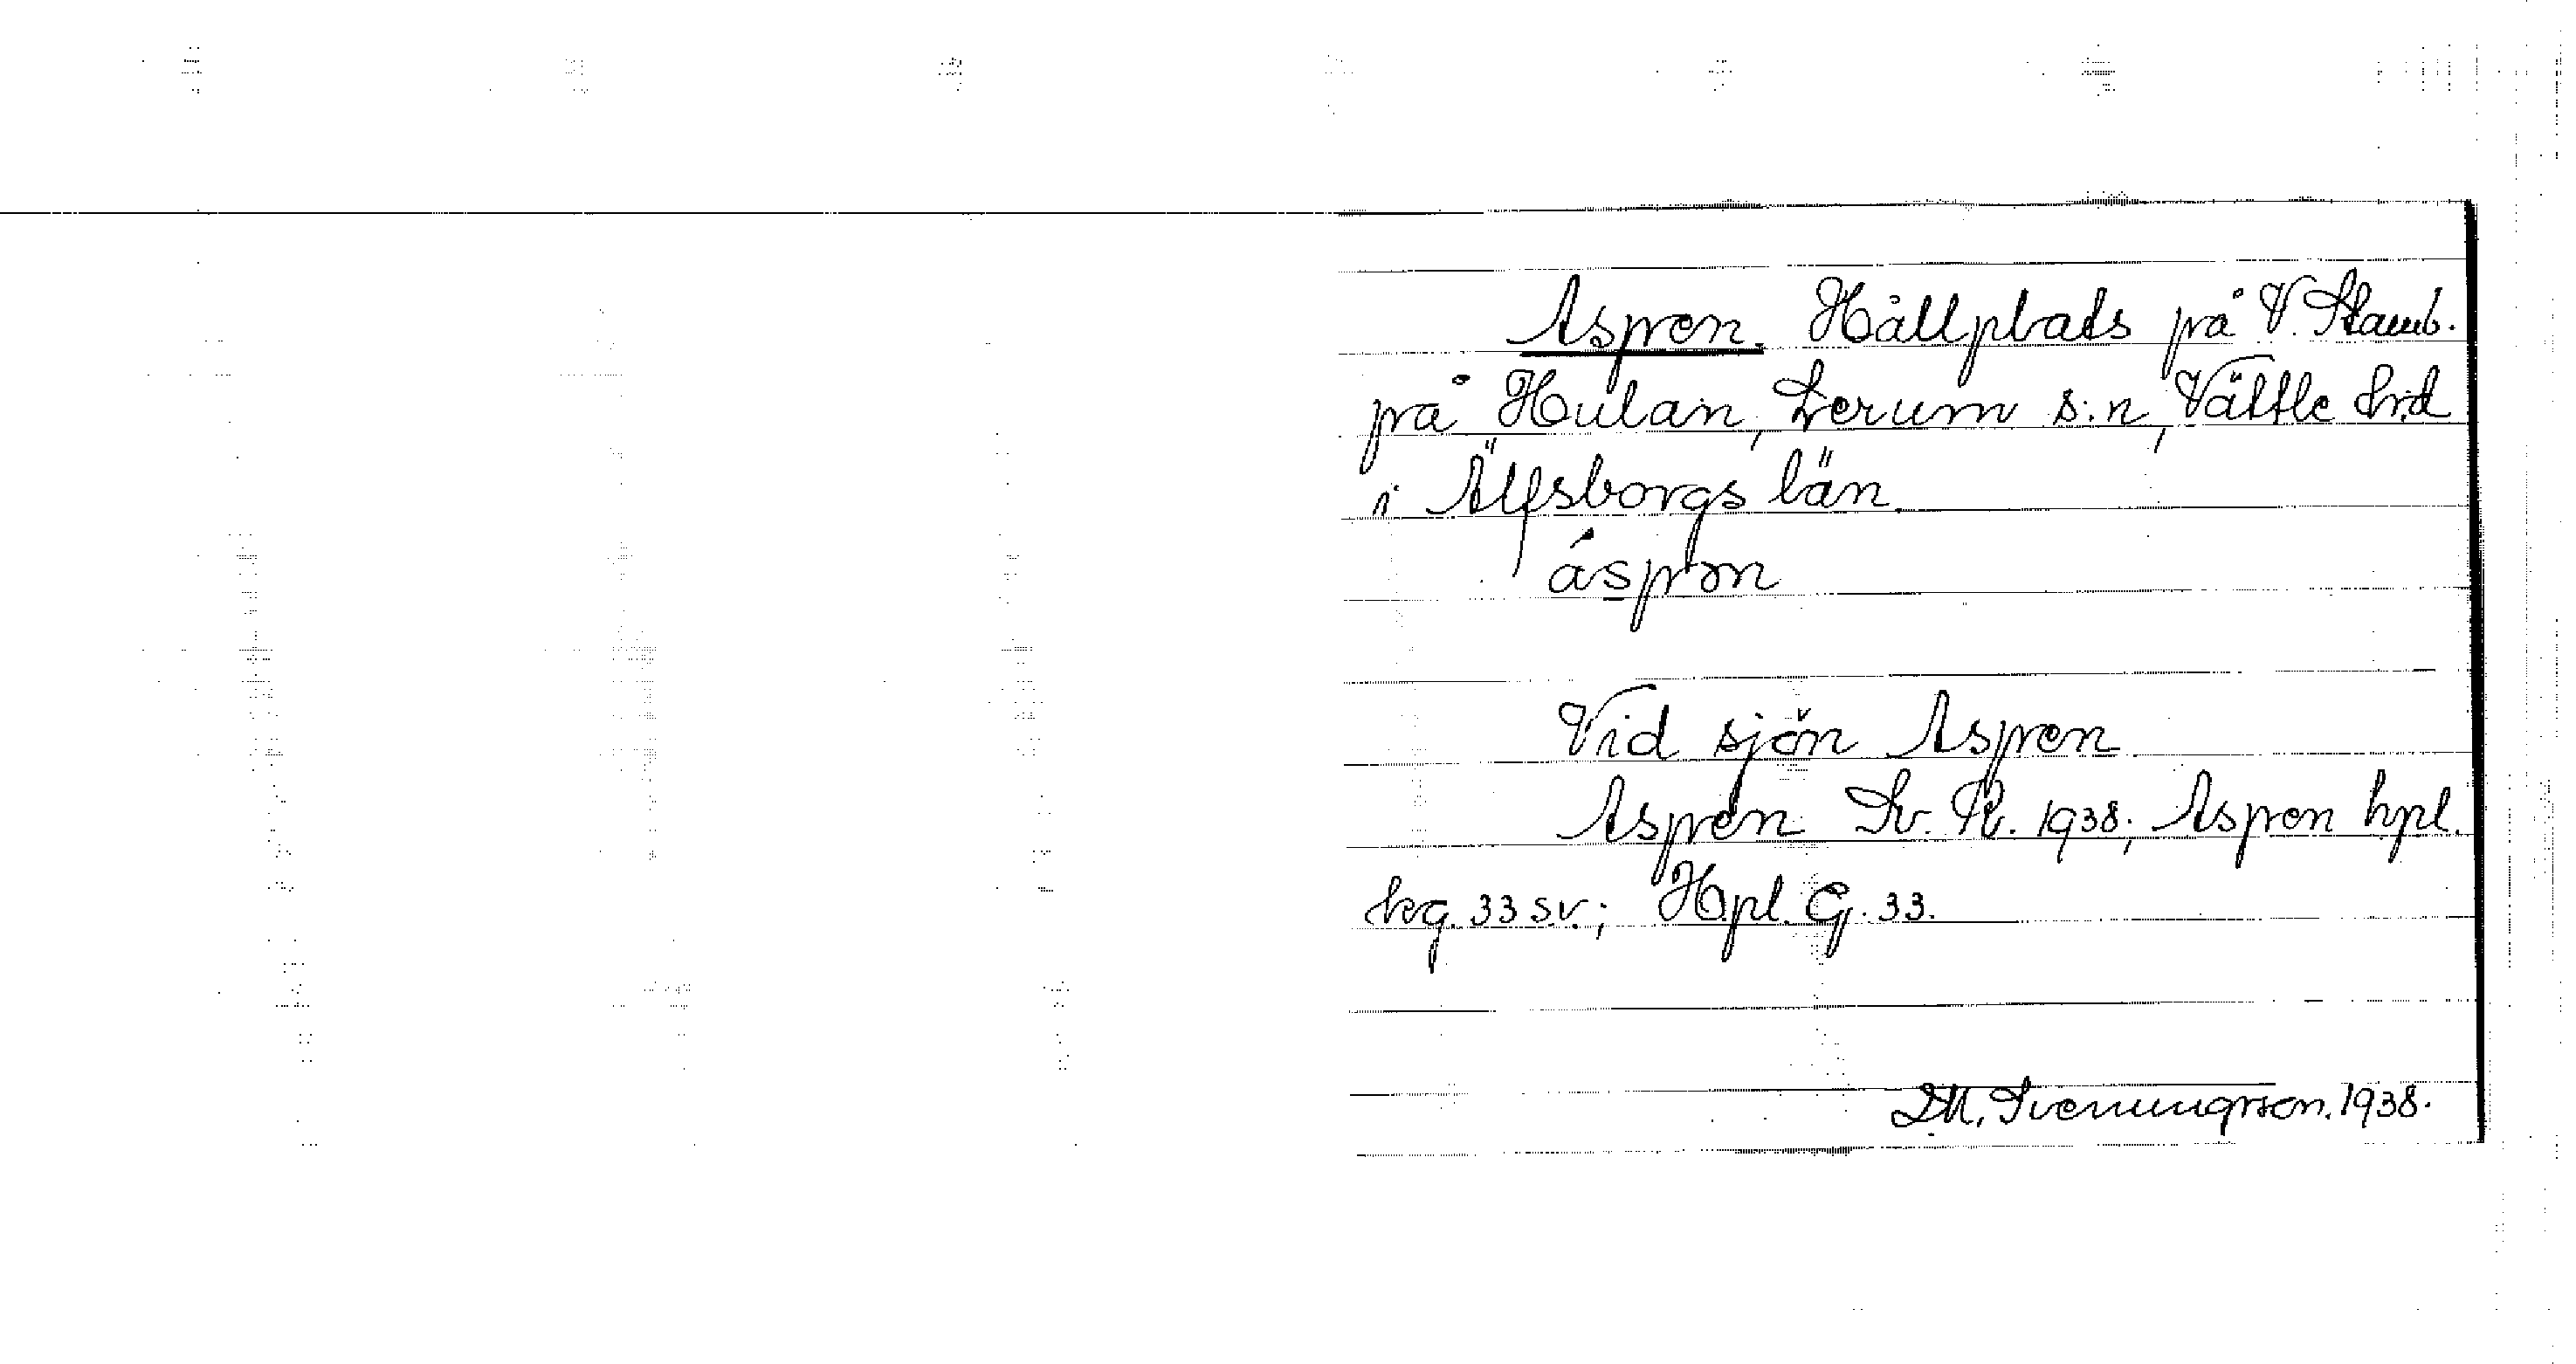 Aspen. Hållplats på V. Stamb.
på Hulan, Lerum s:n, Vättle hrd
i Älfsborgs län
áspən
Vid sjön Aspen
Aspen Sv. R. 1938; Aspen hpl.
krg. 33 sv.; Hpl. G. 33.
D.M. Svenungsson. 1938.